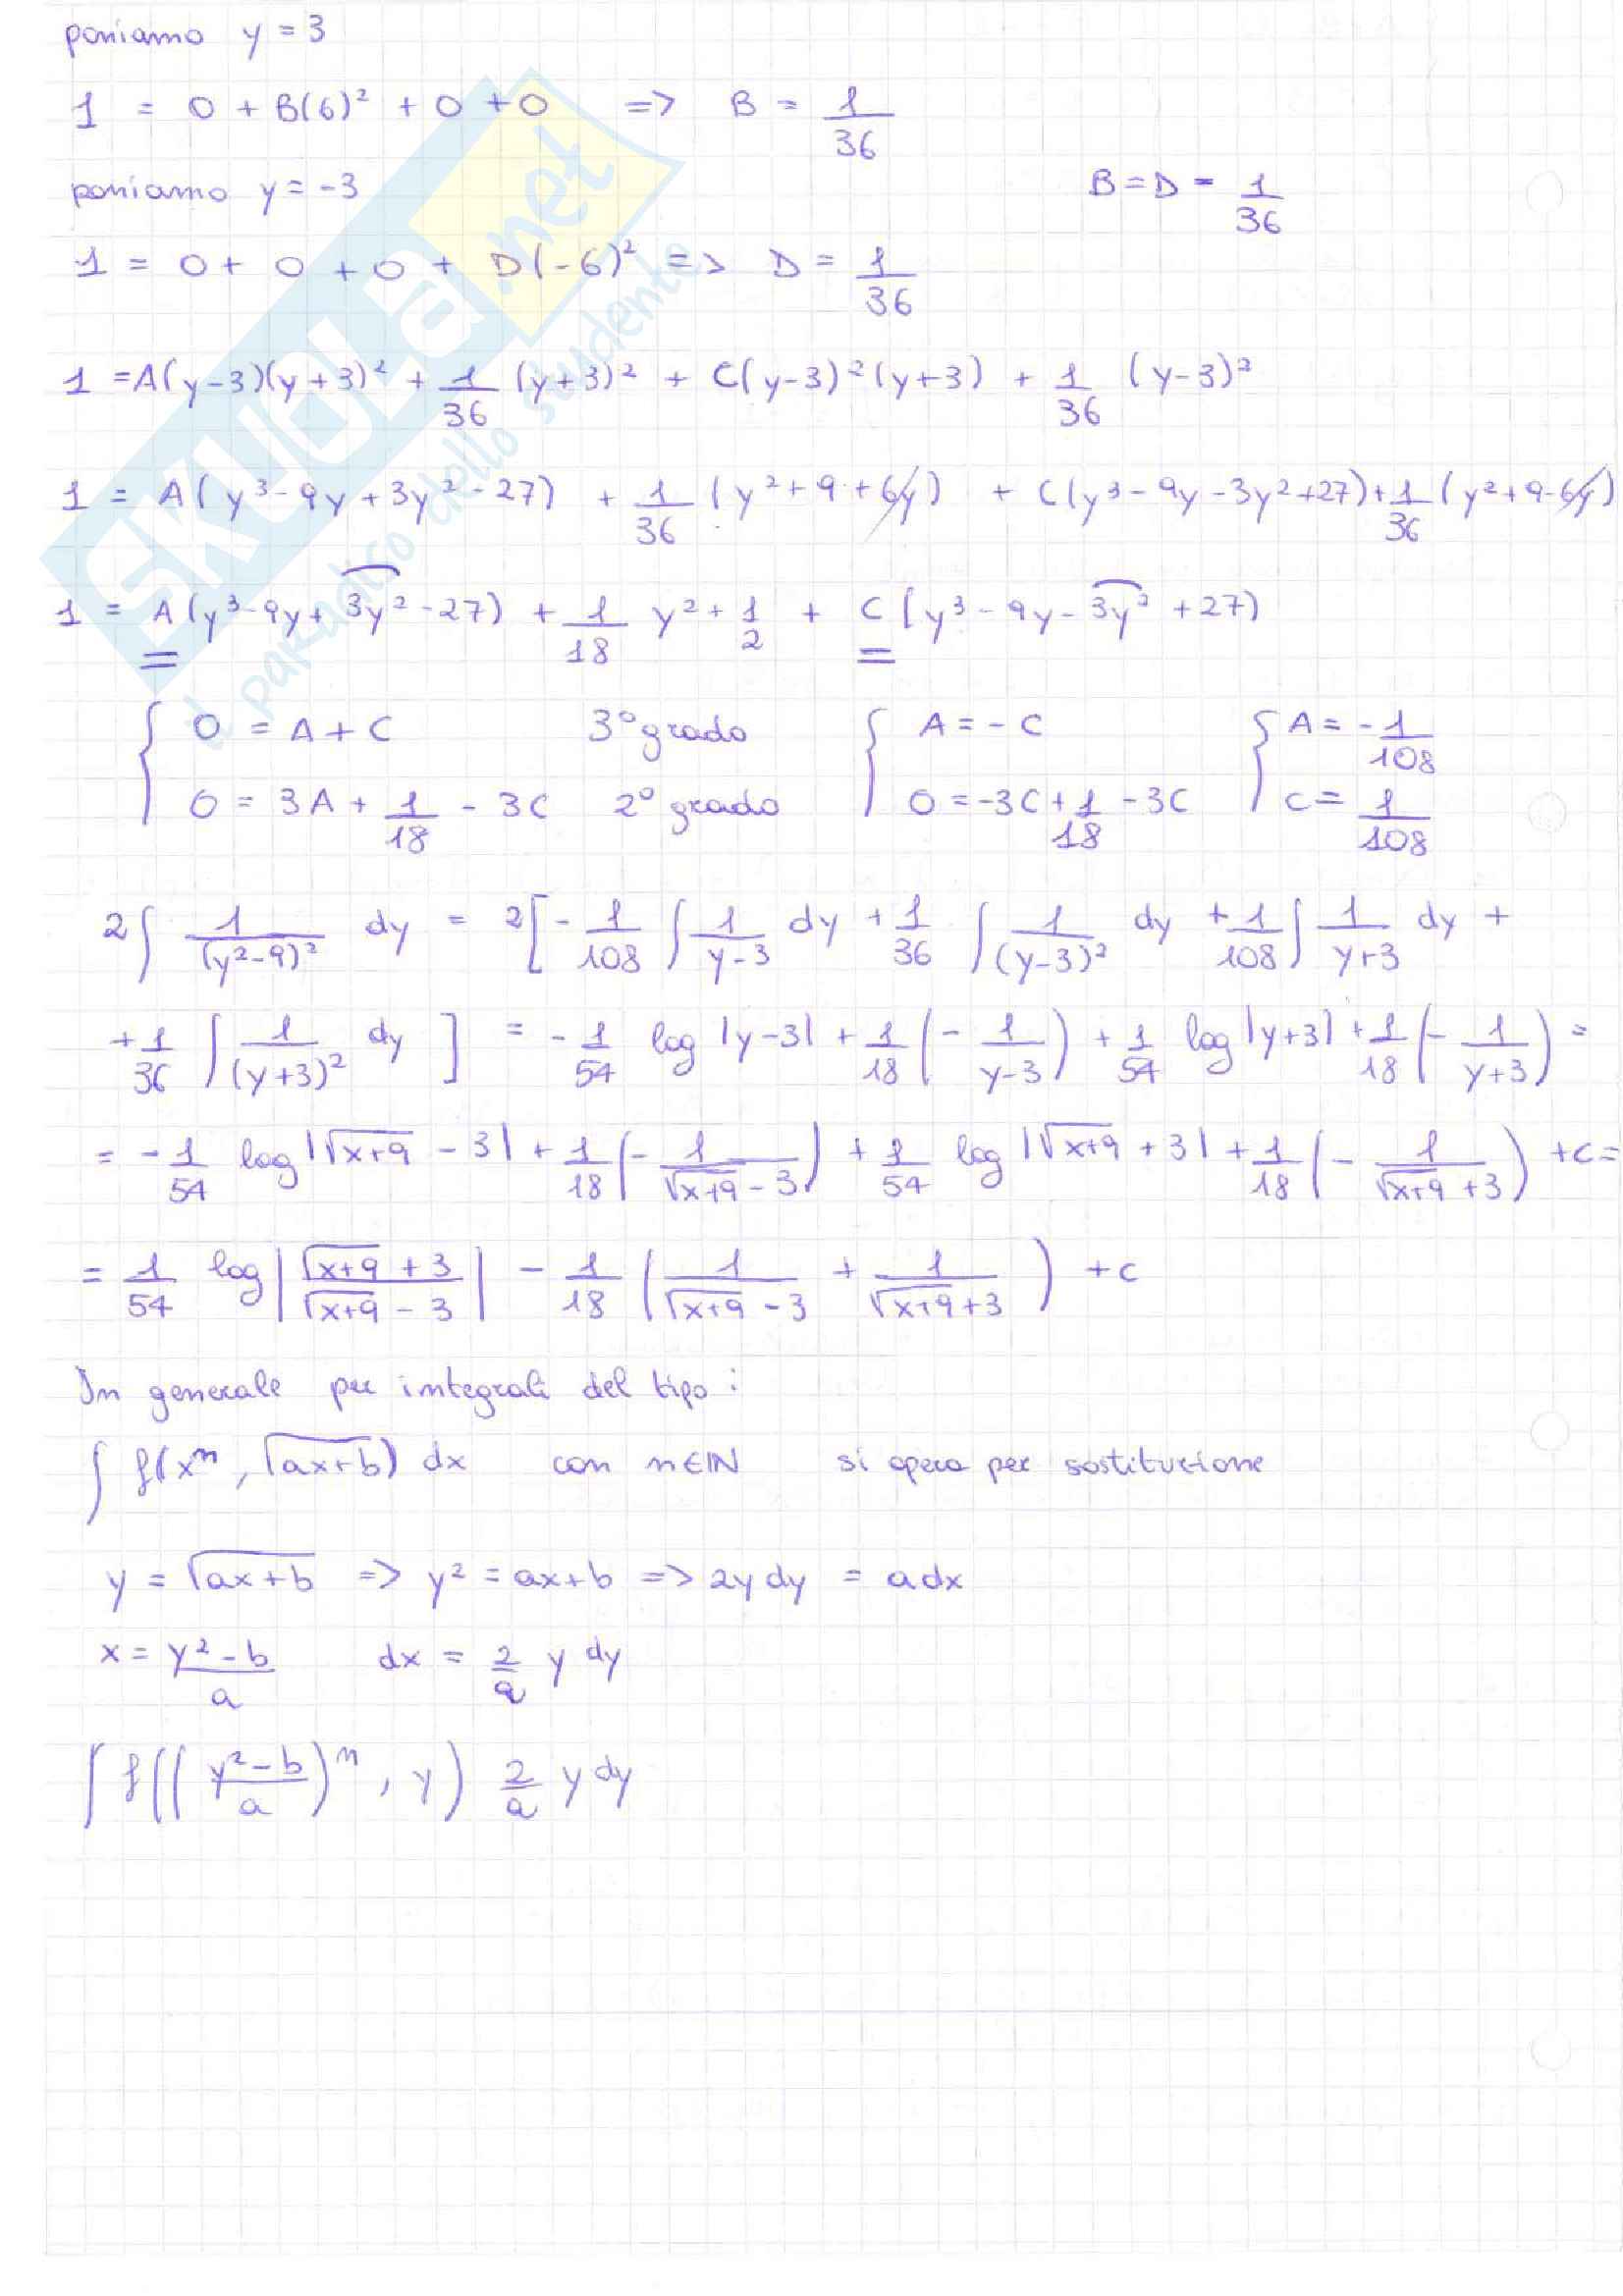 poniamo y = 3
1 = 0 + B(6)² + 0 + 0 => B = 1/36
poniamo y = -3
B = D = 1/36
1 = 0 + 0 + 0 + D(-6)² => D = 1/36
1 = A(y-3)(y+3)² + 1/36 (y+3)² + C(y-3)²(y+3) + 1/36 (y-3)²
1 = A(y³-9y+3y²-27) + 1/36 (y²+9+6y) + C(y³-9y-3y²+27) + 1/36 (y²+9-6y)
1 = A(y³-9y+3y²-27) + 1/18 y² + 1/2 + C(y³-9y-3y²+27)
{ 0 = A + C 3° grado { A = -C { A = -1/108
0 = 3A + 1/18 - 3C 2° grado 0 = -3C + 1/18 - 3C C = 1/108
2∫ 1/(y²-9)² dy = 2[ -1/108 ∫ 1/(y-3) dy + 1/36 ∫ 1/(y-3)² dy + 1/108 ∫ 1/(y+3) dy +
+ 1/36 ∫ 1/(y+3)² dy ] = -1/54 log|y-3| + 1/18 (- 1/(y-3)) + 1/54 log|y+3| + 1/18 (- 1/(y+3)) =
= -1/54 log|√(x+9) - 3| + 1/18 (- 1/(√(x+9) - 3)) + 1/54 log|√(x+9) + 3| + 1/18 (- 1/(√(x+9) + 3)) + c =
= 1/54 log|(√(x+9) + 3)/(√(x+9) - 3)| - 1/18 (1/(√(x+9) - 3) + 1/(√(x+9) + 3)) + c
In generale per integrali del tipo:
∫ f(xⁿ, √(ax+b)) dx con n∈ℕ si opera per sostituzione
y = √(ax+b) => y² = ax+b => 2y dy = a dx
x = (y²-b)/a dx = 2/a y dy
∫ f(((y²-b)/a)ⁿ, y) 2/a y dy
SKUOLA.net
il paradiso dello studente